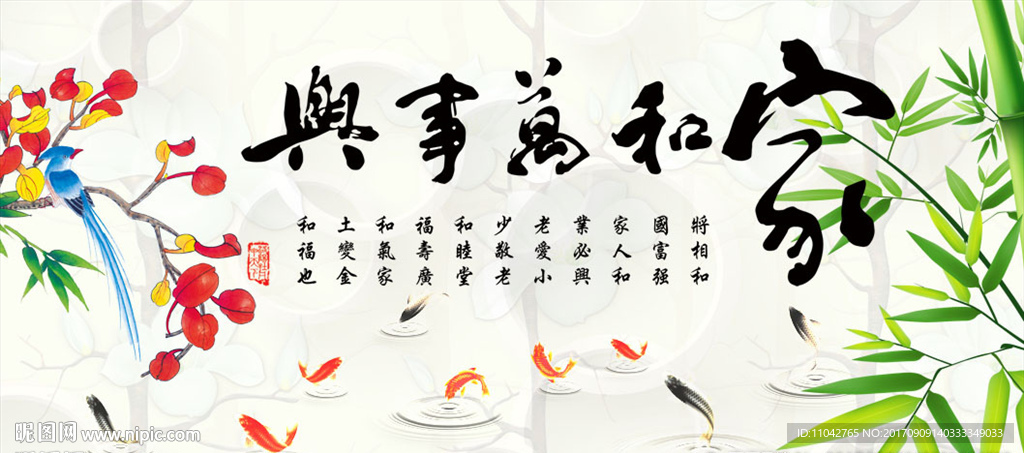 家和萬事興
將相和
國富强
家人和
業必興
老愛小
少敬老
和睦堂
福壽廣
和氣家
土變金
和福也
昵图网 www.nipic.com
ID:11042765 NO:20170909140333349033